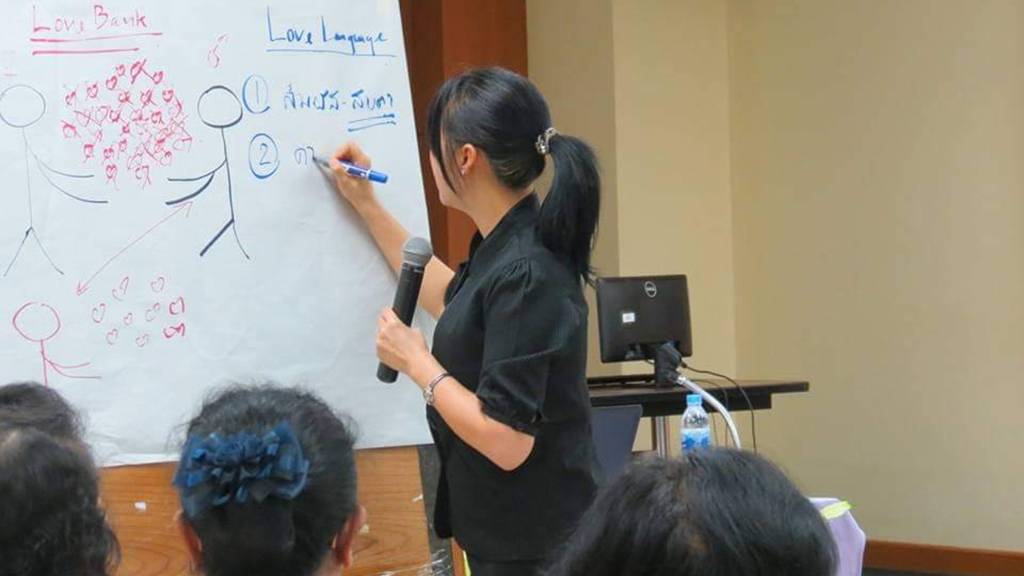 Love Bank
Love Language
① สัมผัส-สบตา
②
DELL